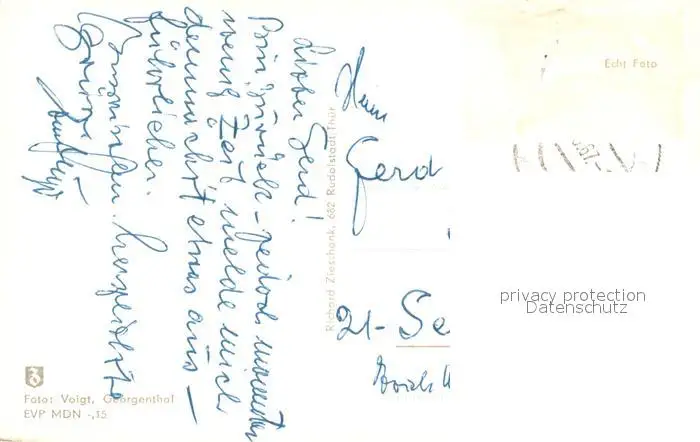 Lieber Gerd!
Bin zurück – jedoch momentan
wenig Zeit melde mich
demnächst etwas aus-
führlicher.
herzlichste
Grüße
Herrn
Gerd
21- Se
Echt Foto
Richard Zieschank, 682 Rudolstadt/Thür
privacy protection
Datenschutz
Foto: Voigt, Georgenthal
EVP MDN -,15